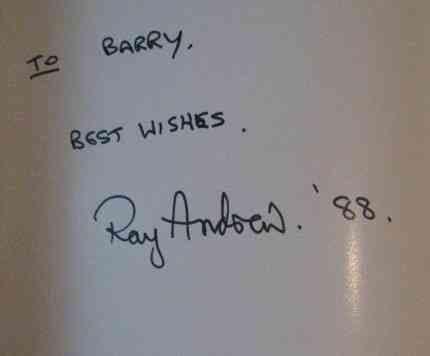 TO BARRY.
BEST WISHES.
Ray Andrew. '88.